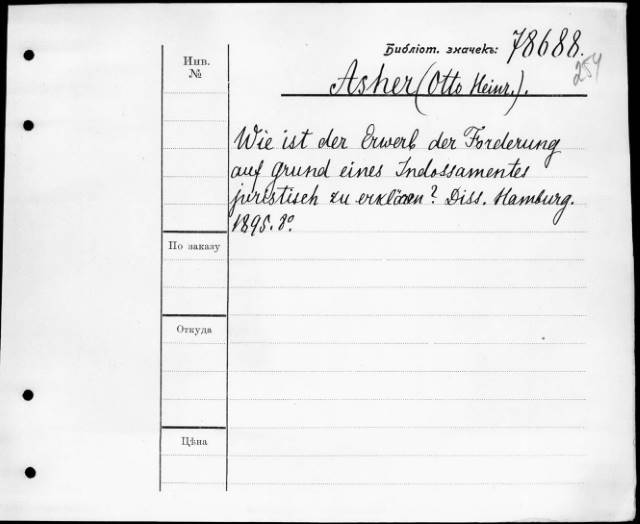 Библіот. значекъ: 78688.
254
Инв.
№
Asher (Otto Heinr.).
Wie ist der Erwerb der Forderung
auf Grund eines Indossamentes
juristisch zu erklären? Diss. Hamburg.
1895. 8°.
По заказу
Откуда
Цѣна